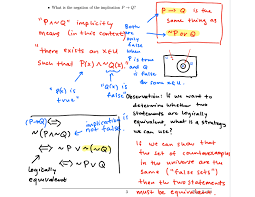 • What is the negation of the implication P → Q?
"P ∧ ~Q" implicitly
means (in this context)
"there exists an x∈U
such that P(x) ∧ ~Q(x)."
"P(x) is true"
"Q(x) is false"
Both
are
only
false
when
P is true
and Q
is false
for some x∈U.
P → Q is the
same thing as
~P or Q
(P→Q) ⟺ implication is not false.
~(P∧~Q)
⟺ ~P ∨ ~(~Q)
⟺ ~P ∨ Q
logically
equivalent
Observation: If we want to
determine whether two
statements are logically
equivalent, what is a strategy
we can use?
If we can show that
the set of counterexamples
in the universe are the
same ("false sets")
then the two statements
must be equivalent.